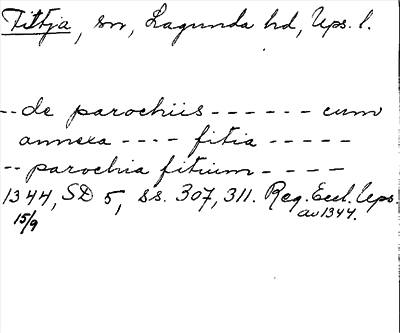 Fittja, sn, Lagunda hd, Ups. l.
-- de parochiis ------ cum
annexa ---- fitia -----
-- parochia fitium ----
1344, SD 5, ss. 307, 311. Reg. Eccl. Ups.
15/9 av 1344.